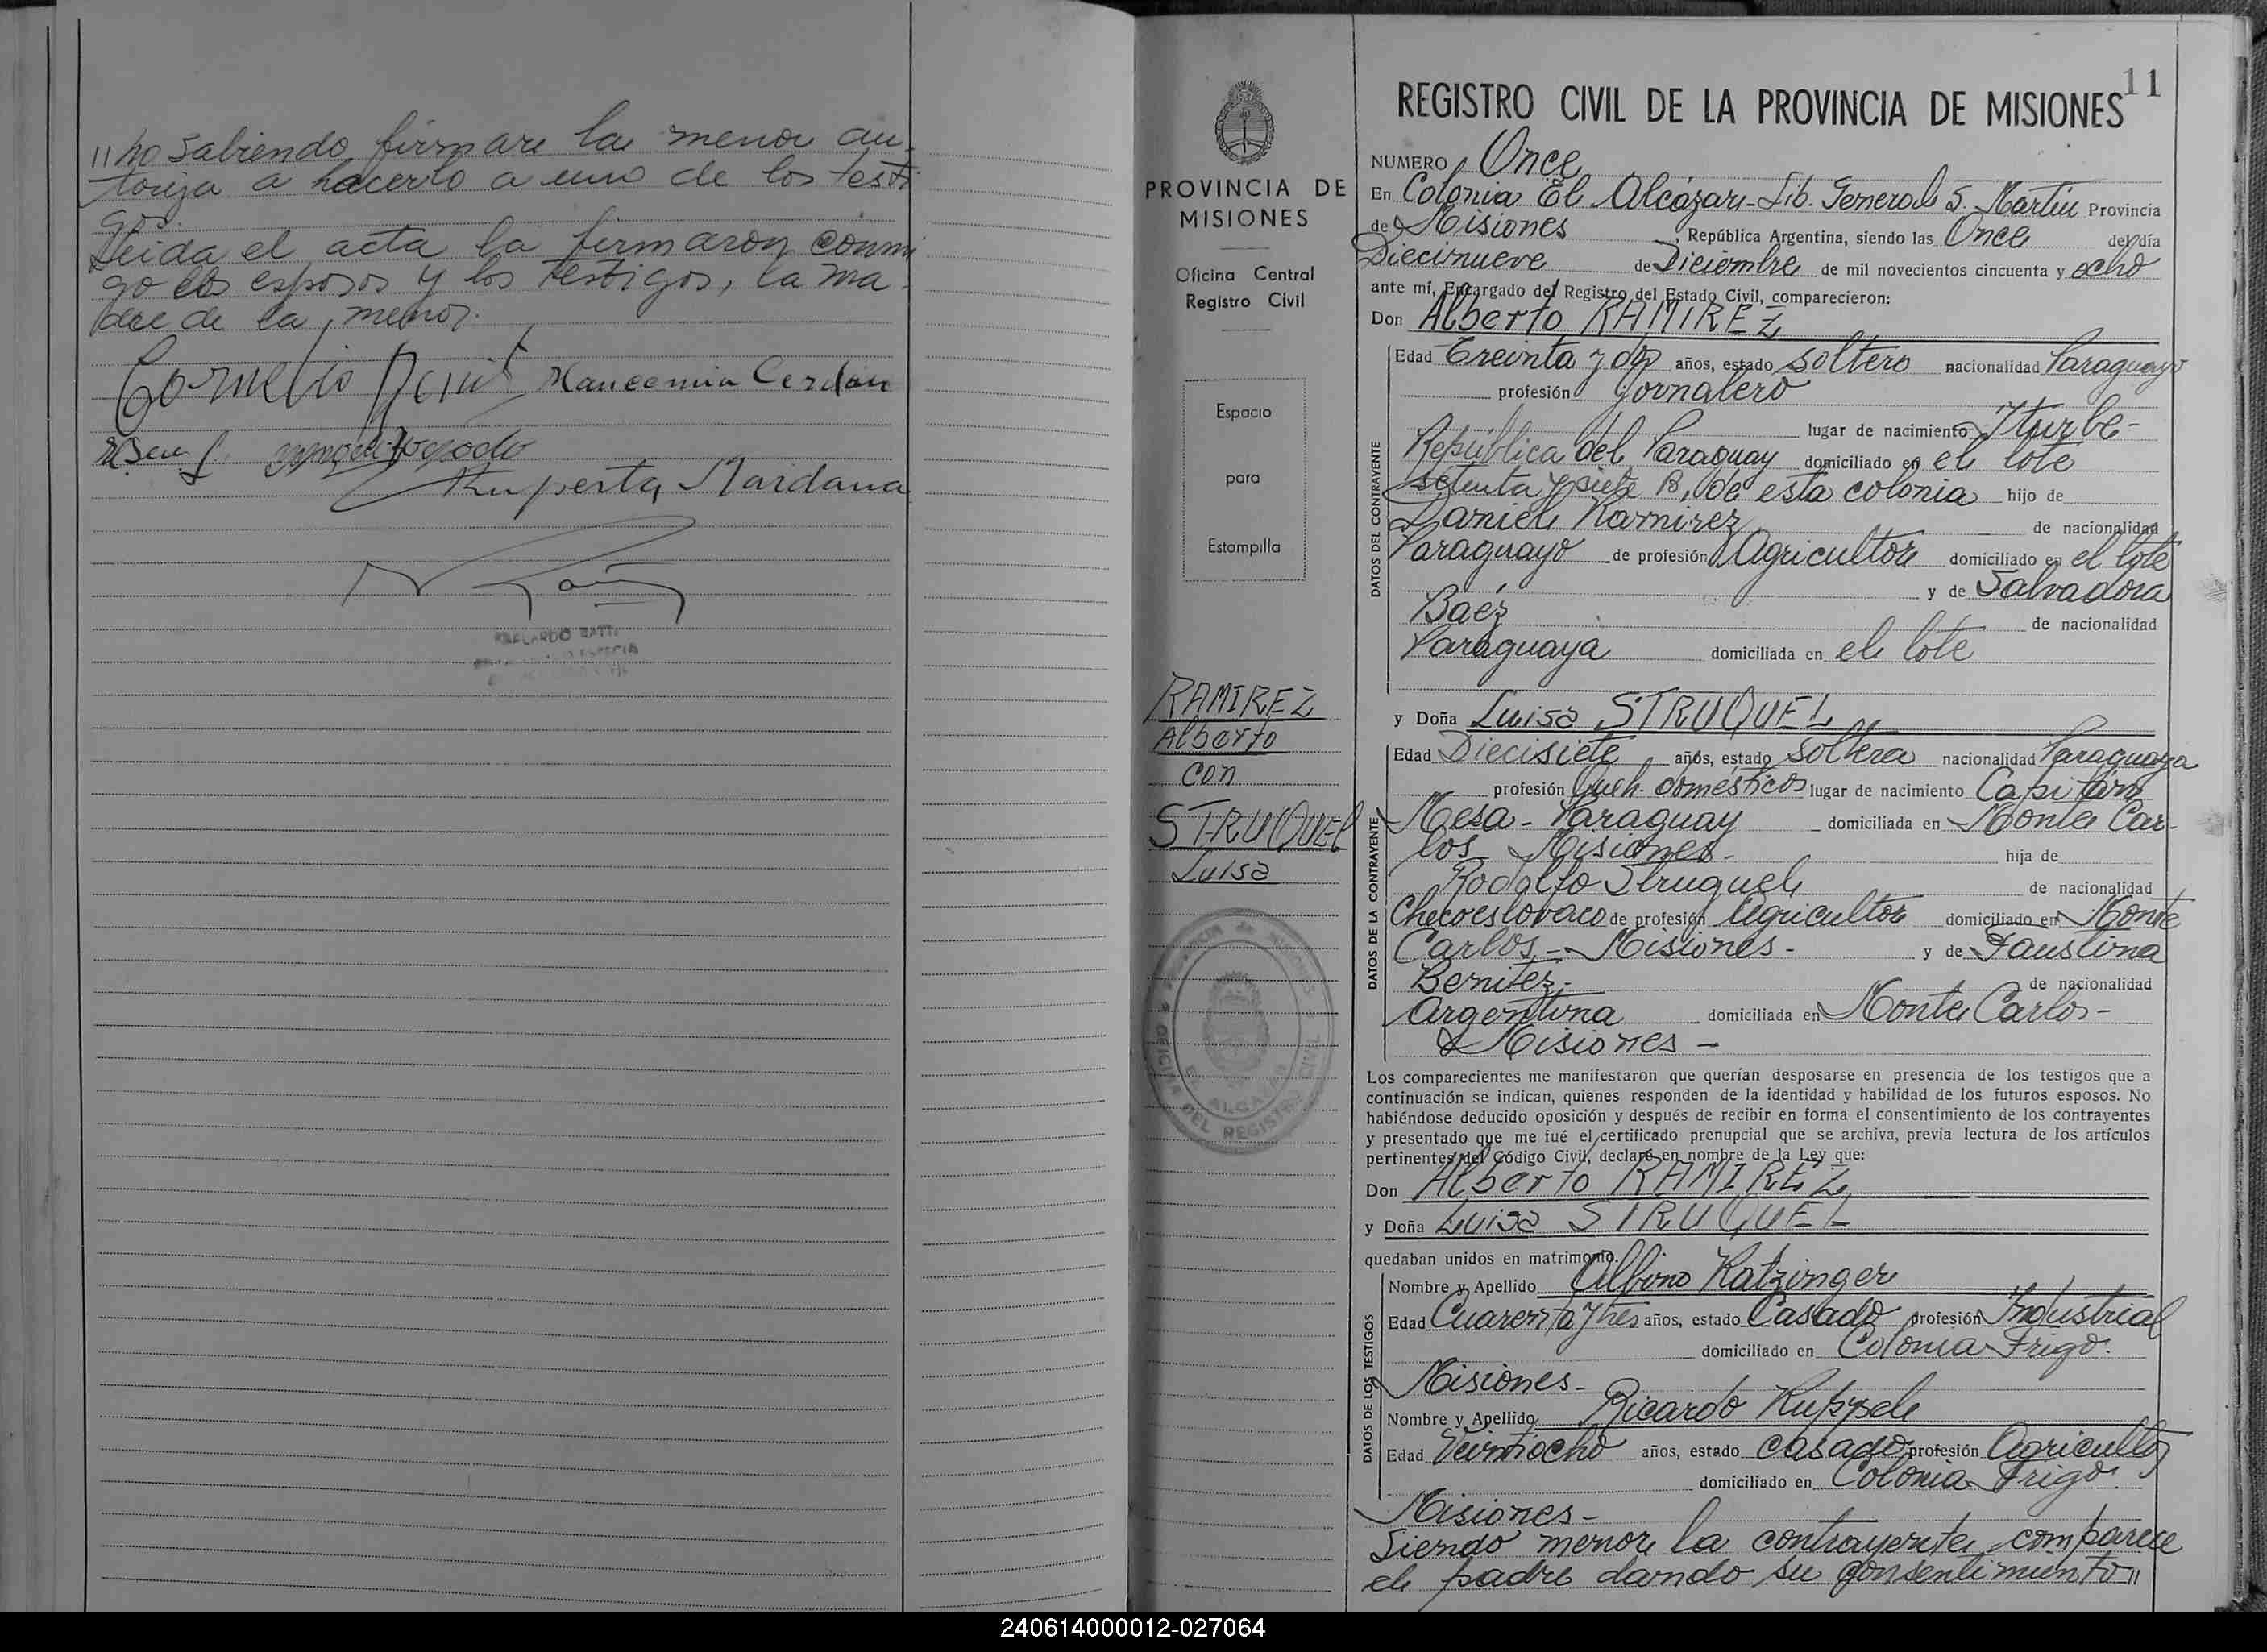 " no sabiendo firmar la menor au-
toriza a hacerlo a uno de los testi
gos.
Leida el acta la firmaron conmi
go los esposos y los testigos, la ma-
dre de la menor.
Cornelio
Cerdan
Ruperta Maidana
11
REGISTRO CIVIL DE LA PROVINCIA DE MISIONES
PROVINCIA DE
MISIONES
Oficina Central
Registro Civil
Espacio
para
Estampilla
RAMIREZ
Alberto
con
STRUQUEL
Luisa
NUMERO Once
En Colonia El Alcázar - Lib. General S. Martin Provincia
de Misiones, República Argentina, siendo las Once del día
Diecinueve de Diciembre de mil novecientos cincuenta y ocho
ante mí, Encargado del Registro del Estado Civil, comparecieron:
Don Alberto RAMIREZ
DATOS DEL CONTRAYENTE
Edad Treinta y dos años, estado soltero nacionalidad Paraguayo
profesión Jornalero
lugar de nacimiento Iturbe-
República del Paraguay domiciliado en el lote
setenta y siete B, de esta colonia hijo de
Daniel Ramirez de nacionalidad
Paraguayo de profesión Agricultor domiciliado en el lote
y de Salvadora
Baéz de nacionalidad
Paraguaya domiciliada en el lote
y Doña Luisa STRUQUEL
DATOS DE LA CONTRAYENTE
Edad Diecisiete años, estado soltera nacionalidad Paraguaya
profesión Queh. domésticos lugar de nacimiento Capitán
Mesa - Paraguay domiciliada en Monte Car-
los Misiones- hija de
Rodolfo Struquel de nacionalidad
Checoeslovaco de profesión Agricultor domiciliado en Monte
Carlos - Misiones - y de Faustina
Benitez - de nacionalidad
Argentina domiciliada en Monte Carlos -
Misiones -
Los comparecientes me manifestaron que querían desposarse en presencia de los testigos que a
continuación se indican, quienes responden de la identidad y habilidad de los futuros esposos. No
habiéndose deducido oposición y después de recibir en forma el consentimiento de los contrayentes
y presentado que me fué el certificado prenupcial que se archiva, previa lectura de los artículos
pertinentes del Código Civil, declaré en nombre de la Ley que:
Don Alberto RAMIREZ
y Doña Luisa STRUQUEL
quedaban unidos en matrimonio.
DATOS DE LOS TESTIGOS
Nombre y Apellido Albino Ratzinger
Edad Cuarenta y tres años, estado Casado profesión Industrial
domiciliado en Colonia Frigo.
Misiones -
Nombre y Apellido Ricardo Ruppel
Edad Veintiocho años, estado casado profesión Agricultor
domiciliado en Colonia Frigo.
Misiones -
Siendo menor la contrayente comparece
el padre dando su consentimiento "
240614000012-027064